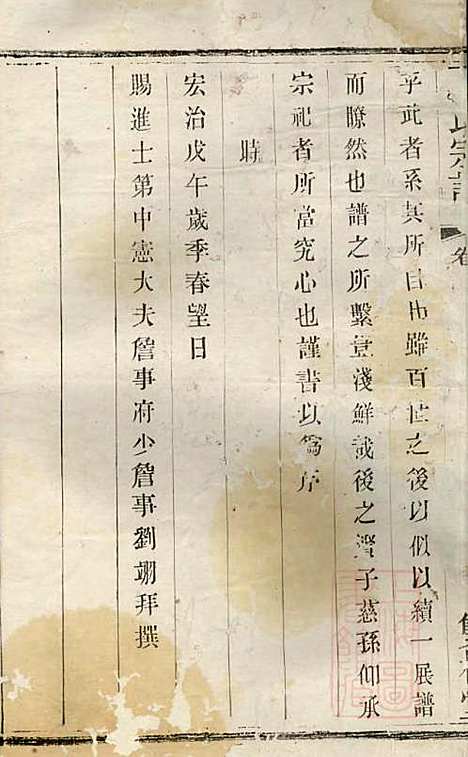 氏宗譜 卷
乎此者系其所自出雖百世之後以似以續一展譜
而瞭然也譜之所繫豈淺鮮哉後之賢子慈孫仰承
宗祀者所當究心也謹書以爲序
時
宏治戊午歲季春望日
賜進士第中憲大夫詹事府少詹事劉翊拜撰